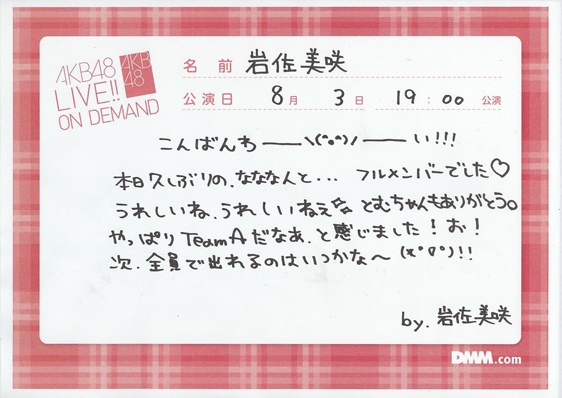 AKB48
LIVE!!
ON DEMAND
AKB
48
名前 岩佐美咲
公演日 8月 3日 19:00 公演
こんばんわ――\(^o^)/――い!!!
本日久しぶりの、なななんと... フルメンバーでした♡
うれしいね、うれしいねぇ☆ とむちゃんもありがとう。
やっぱりTeamAだなあ、と感じました!お!
次、全員で出れるのはいつかな〜 (*°▽°)!!
by. 岩佐美咲
DMM.com